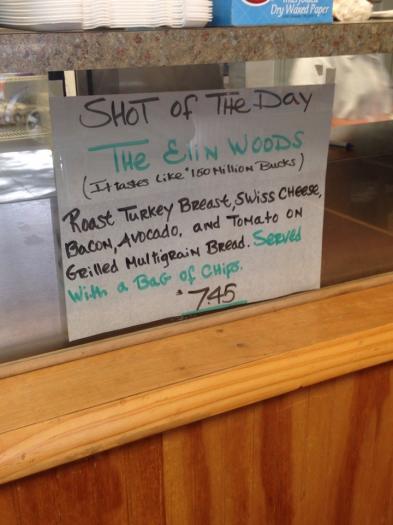 Dry Waxed Paper
SHOT OF THE DAY
THE ElIN WOODS
(It tastes Like $150 Million Bucks)
Roast Turkey Breast, Swiss Cheese,
Bacon, Avocado, and Tomato on
Grilled Multigrain Bread. Served
With a Bag of Chips.
$7.45